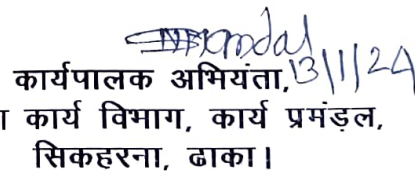 13/1/24
कार्यपालक अभियंता,
कार्य विभाग, कार्य प्रमंडल,
सिकहरना, ढाका।